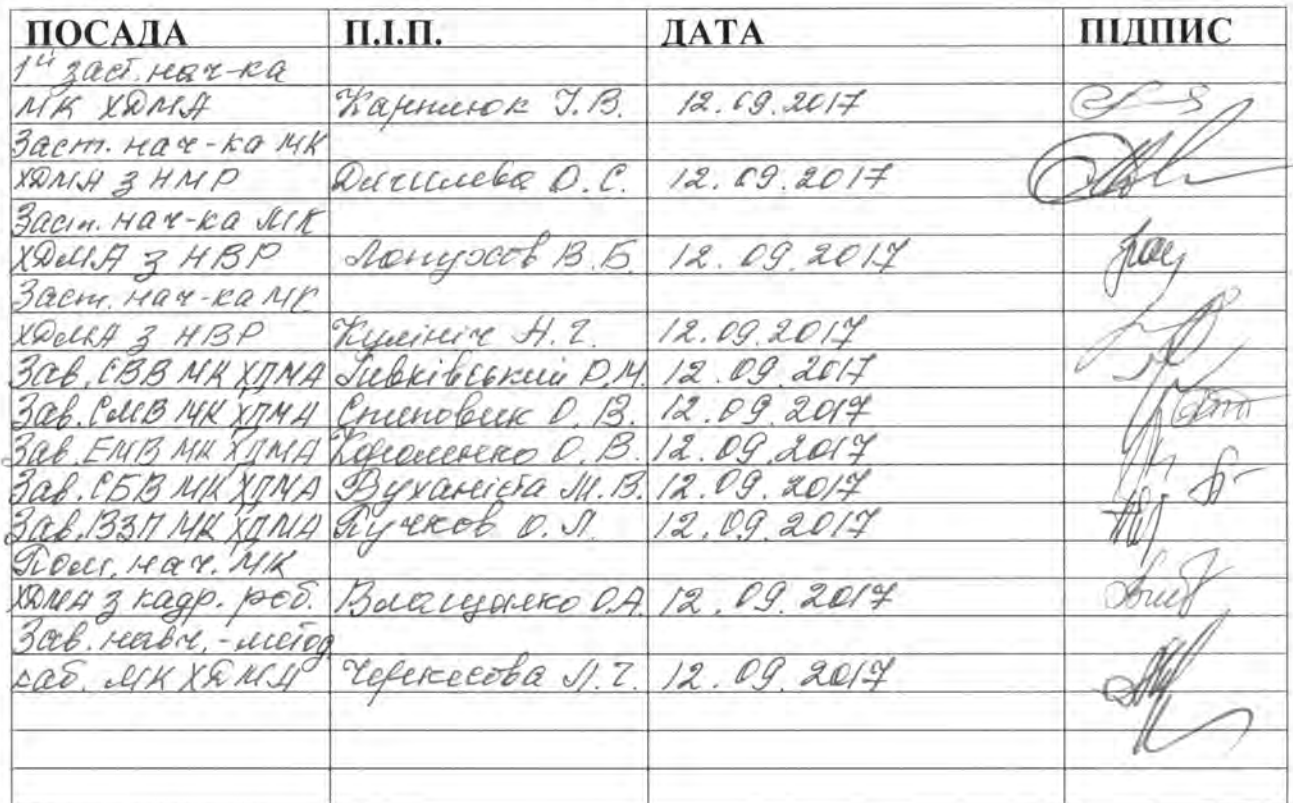 ПОСАДА П.І.П. ДАТА ПІДПИС
1й заст. нач-ка
МК ХДМА І.В. 12.09.2017
Заст. нач-ка МК
ХДМА з НМР О.С. 12.09.2017
Заст. нач-ка МК
ХДМА з НВР Лопухов В.Б. 12.09.2017
Заст. нач-ка МК
ХДМА з НВР Кулініч Н.Г. 12.09.2017
Зав. СВВ МК ХДМА 12.09.2017
Зав. СМВ МК ХДМА О.В. 12.09.2017
Зав. ЕМВ МК ХДМА Короленко О.В. 12.09.2017
Зав. СБВ МК ХДМА М.В. 12.09.2017
Зав. ВЗП МК ХДМА Пучков О.Л. 12.09.2017
Пом. нач. МК
ХДМА з кадр. роб. Власценко О.А. 12.09.2017
Зав. навч.-метод
каб. МК ХДМА Черкесова Л.Г. 12.09.2017